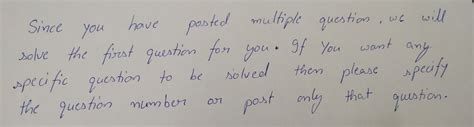 Since you have posted multiple question, we will
solve the first question for you. If You want any
specific question to be solved then please specify
the question number or post only that question.